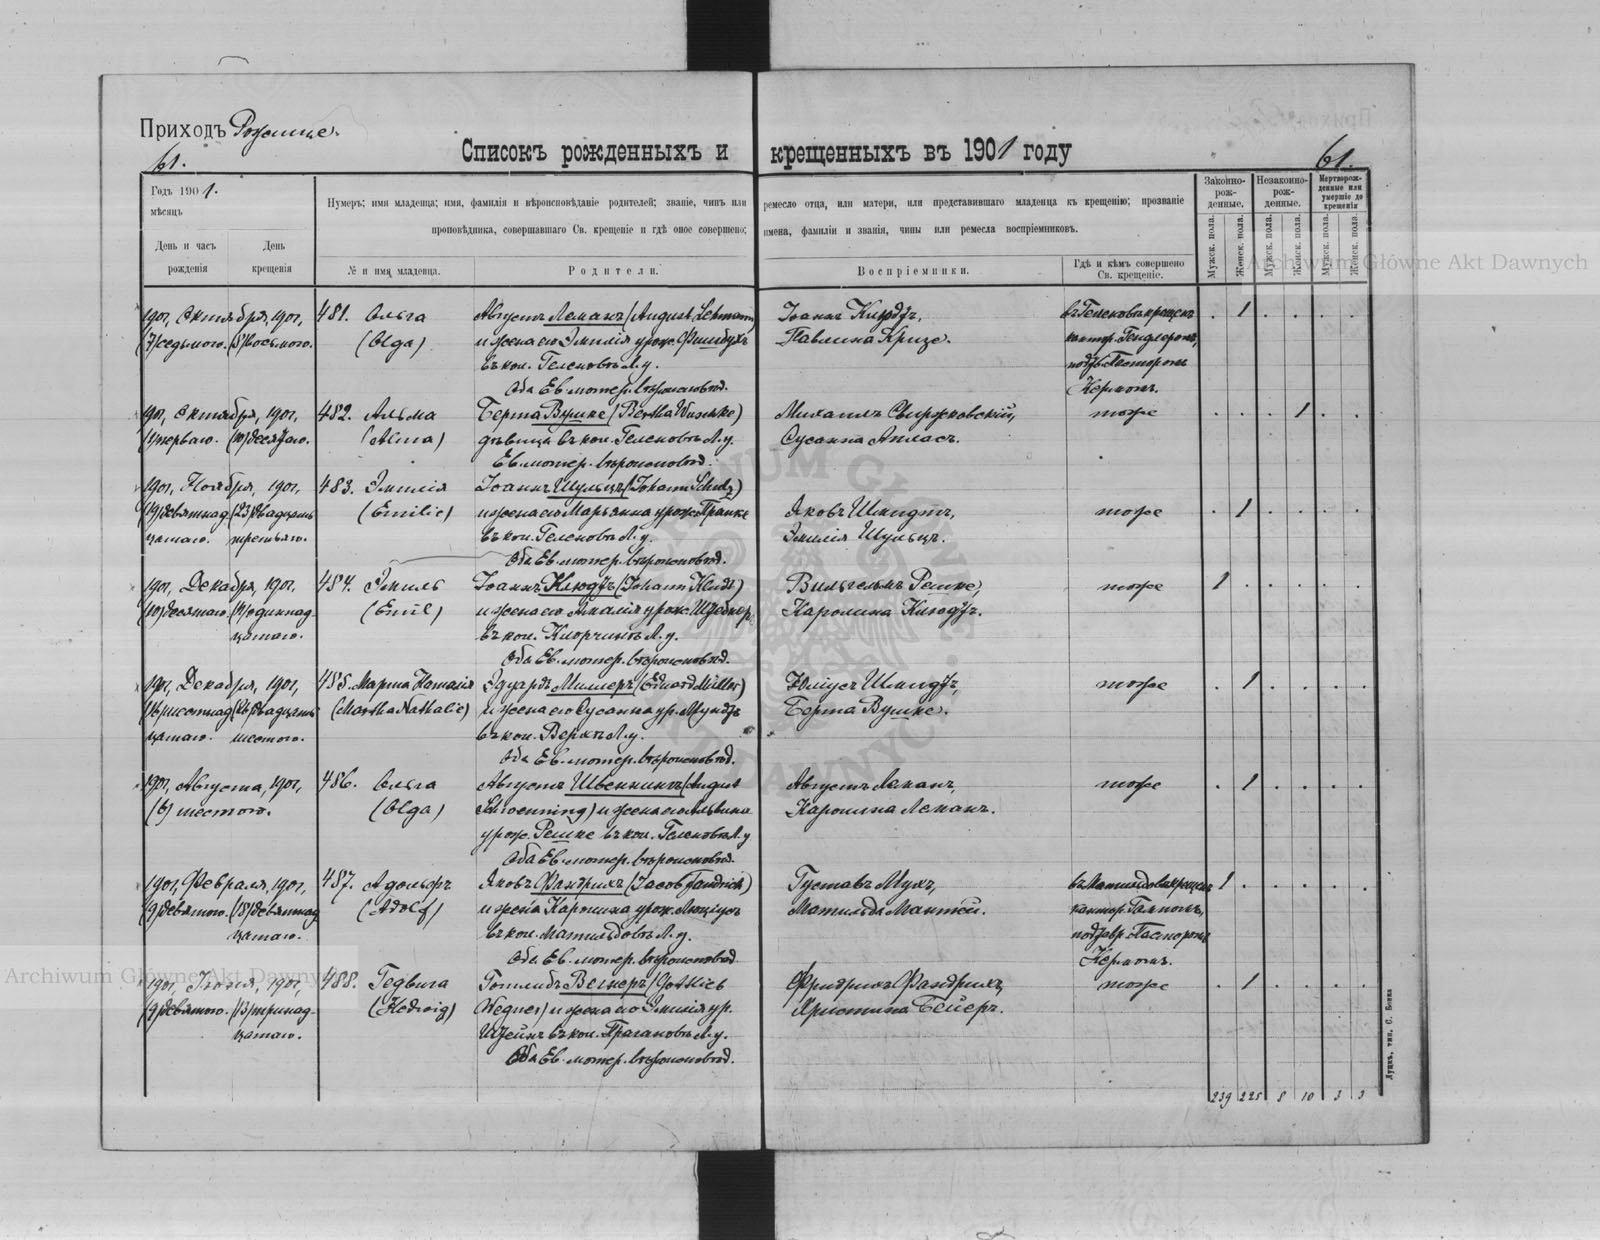 Приходъ Рожище.
61.
Списокъ рожденныхъ и крещенныхъ въ 1901 году
61.
Годъ 1901.
мѣсяцъ
День и часъ рожденія
День крещенія
Нумеръ; имя младенца; имя, фамилія и вѣроисповѣданіе родителей; званіе, чинъ или ремесло отца, или матери, или представившаго младенца къ крещенію; прозваніе
проповѣдника, совершавшаго Св. крещеніе и гдѣ оное совершено; имена, фамиліи и званія, чины или ремесла воспріемниковъ.
№ и имя младенца.
Родители.
Воспріемники.
Гдѣ и кѣмъ совершено Св. крещеніе.
Законно-рож-денные.
Незаконно-рож-денные.
Мертворож-денные или умершіе до крещенія
Мужск. пола.
Женск. пола.
Мужск. пола.
Женск. пола.
Мужск. пола.
Женск. пола.
1901, Октября, 1901, 481. Ольга Августъ Леманъ (August Lehmann) Іоанъ Клюдтъ, въ Геленовѣ крещенъ . 1 . . . .
(7) седьмого. (8) восьмого. (Olga) и жена его Эмилія урож. Павлина Кризе. кантор.
въ кол. Геленовѣ Л. у. подтв. Пасторомъ
Оба Ев. лютер. вѣроисповѣд. Керномъ.
1901, Октября, 1901, 482. Альма Берта Вушке (Bertha Wuschke) Михаилъ тоже . . . 1 . .
(1) перваго. (10) десятаго. (Alma) дѣвица въ кол. Геленовѣ Л. у. Сусанна Атласъ.
Ев. лютер. вѣроисповѣд.
1901, Ноября, 1901, 483. Эмилія Іоанъ Шульцъ (Johann Schulz)
(19) девятнад- (23) двадцать (Emilie) и жена его Марьянна урож. Яковъ Шмидтъ, тоже . 1 . . . .
цатаго. третьяго. въ кол. Геленовѣ Л. у. Эмилія Шульцъ.
Оба Ев. лютер. вѣроисповѣд.
1901, Декабря, 1901, 484. Эмиль Іоанъ Клюдтъ (Johann Kludt) Вильгельмъ Решке, тоже 1 . . . .
(10) десятаго. (11) одиннад- (Emil) и жена его Амалія урож. Каролина Клюдтъ.
цатаго. въ кол. Л. у.
Оба Ев. лютер. вѣроисповѣд.
1901, Декабря, 1901, 485. Марта Наталія Эдуардъ Миллеръ (Eduard Müller) Юліусъ Шмидтъ, тоже . 1 . . . .
(16) шестнад- (26) двадцать (Martha Nathalie) и жена его Сусанна ур. Мундтъ Берта Вушке.
цатаго. шестого. въ кол. Л. у.
Оба Ев. лютер. вѣроисповѣд.
1901, Августа, 1901, 486. Ольга Августъ Швеннингъ (August Августъ Леманъ, тоже . 1 . . . .
(6) шестого. (Olga) Schwenning) и жена его Альвина Каролина Леманъ.
урож. Решке въ кол. Геленовѣ Л. у.
Оба Ев. лютер. вѣроисповѣд.
1901, Февраля, 1901, 487. Адольфъ Яковъ Фандрихъ (Jacob Fandrich) Густавъ Мухъ, въ Матильдовѣ крещенъ 1 . . . . .
(9) девятого. (19) девятнад- (Adolf) и жена Каролина урож. Матильда Мантей. кантор.
цатаго. въ кол. Матильдовѣ Л. у. подтвр. Пасторомъ
Оба Ев. лютер. вѣроисповѣд. Керномъ.
1901, Іюня, 1901, 488. Гедвига Готлибъ Вегнеръ (Gottlieb Фридрихъ Фандрихъ, тоже . 1 . . . .
(9) девятого. (13) тринад- (Hedwig) Wegner) и жена его Эмилія ур. Христина Бейеръ.
цатаго. Штейнъ въ кол. Л. у.
Оба Ев. лютер. вѣроисповѣд.
239 225 8 10 3 3
Луцкъ, тип. С. Бонка
Archiwum Główne Akt Dawnych
Archiwum Główne Akt Dawnych